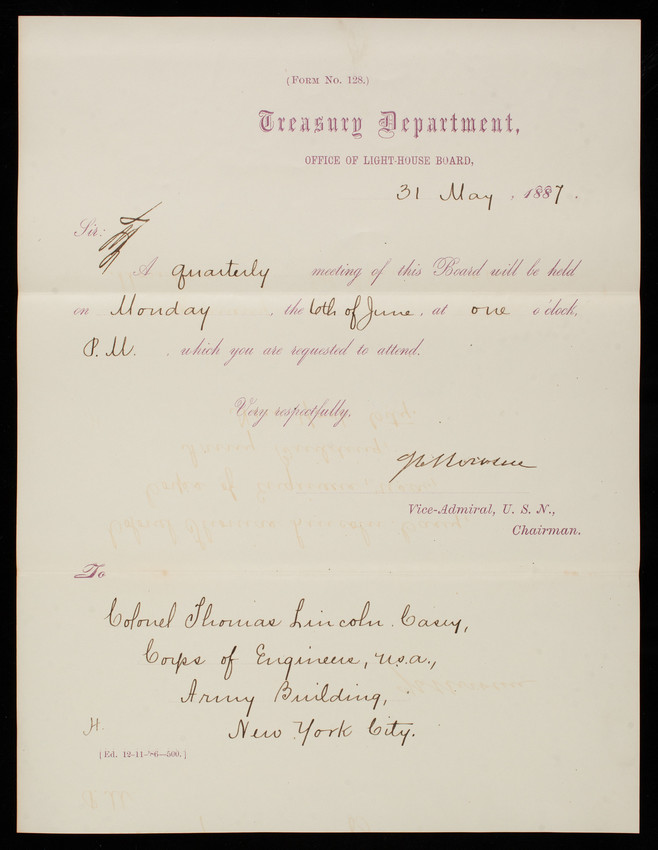 (Form No. 128.)
Treasury Department,
OFFICE OF LIGHT-HOUSE BOARD,
31 May, 1887.
Sir:
A quarterly meeting of this Board will be held
on Monday, the 6th of June, at one o'clock,
P.M., which you are requested to attend.
Very respectfully,
Vice-Admiral, U. S. N.,
Chairman.
To
Colonel Thomas Lincoln Casey,
Corps of Engineers, U.S.A.,
Army Building,
New York City.
H.
[Ed. 12-11-'86—500.]